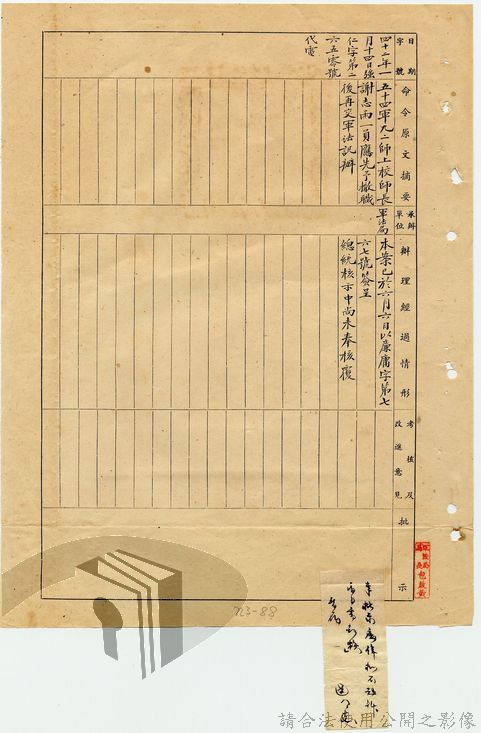 日期
字號
命令原文摘要
承辦
單位
辦理經過情形
考核及
改進意見
批示
四十二年一
月十四日強
仁字第二
六五零號
代電
五十四軍九二師上校師長
謝志雨一員應先予撤職
後再交軍法訊辦
軍法局
本案已於六月六日以廉庸字第七
六七號簽呈
總統核示中尚未奉核覆
723-88
請合法使用公開之影像